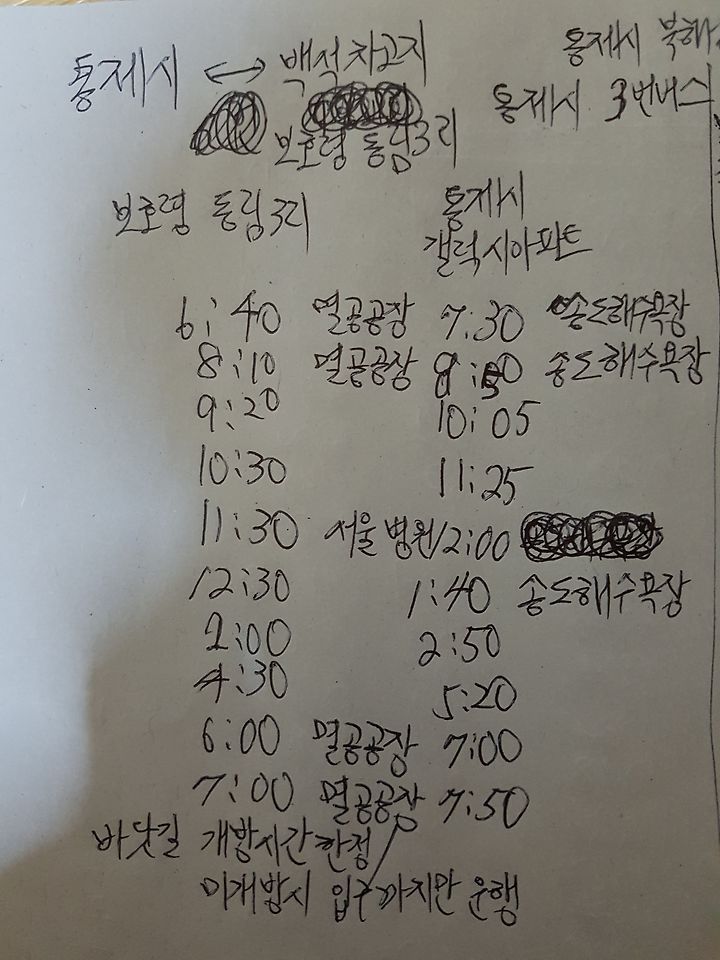 통제시 ↔ 백석차고지
통제시 북해
통제시 3번버스
보호령 동림3리
보호령 동림3리
통제시
갤럭시아파트
6:40 멸공공장 7:30 송도해수욕장
8:10 멸공공장 송도해수욕장
9:20 10:05
10:30 11:25
11:30 서울병원 12:00
12:30 1:40 송도해수욕장
2:00 2:50
4:30 5:20
6:00 멸공공장 7:00
7:00 멸공공장 7:50
바닷길 개방시간 한정
미개방시 입구까지만 운행